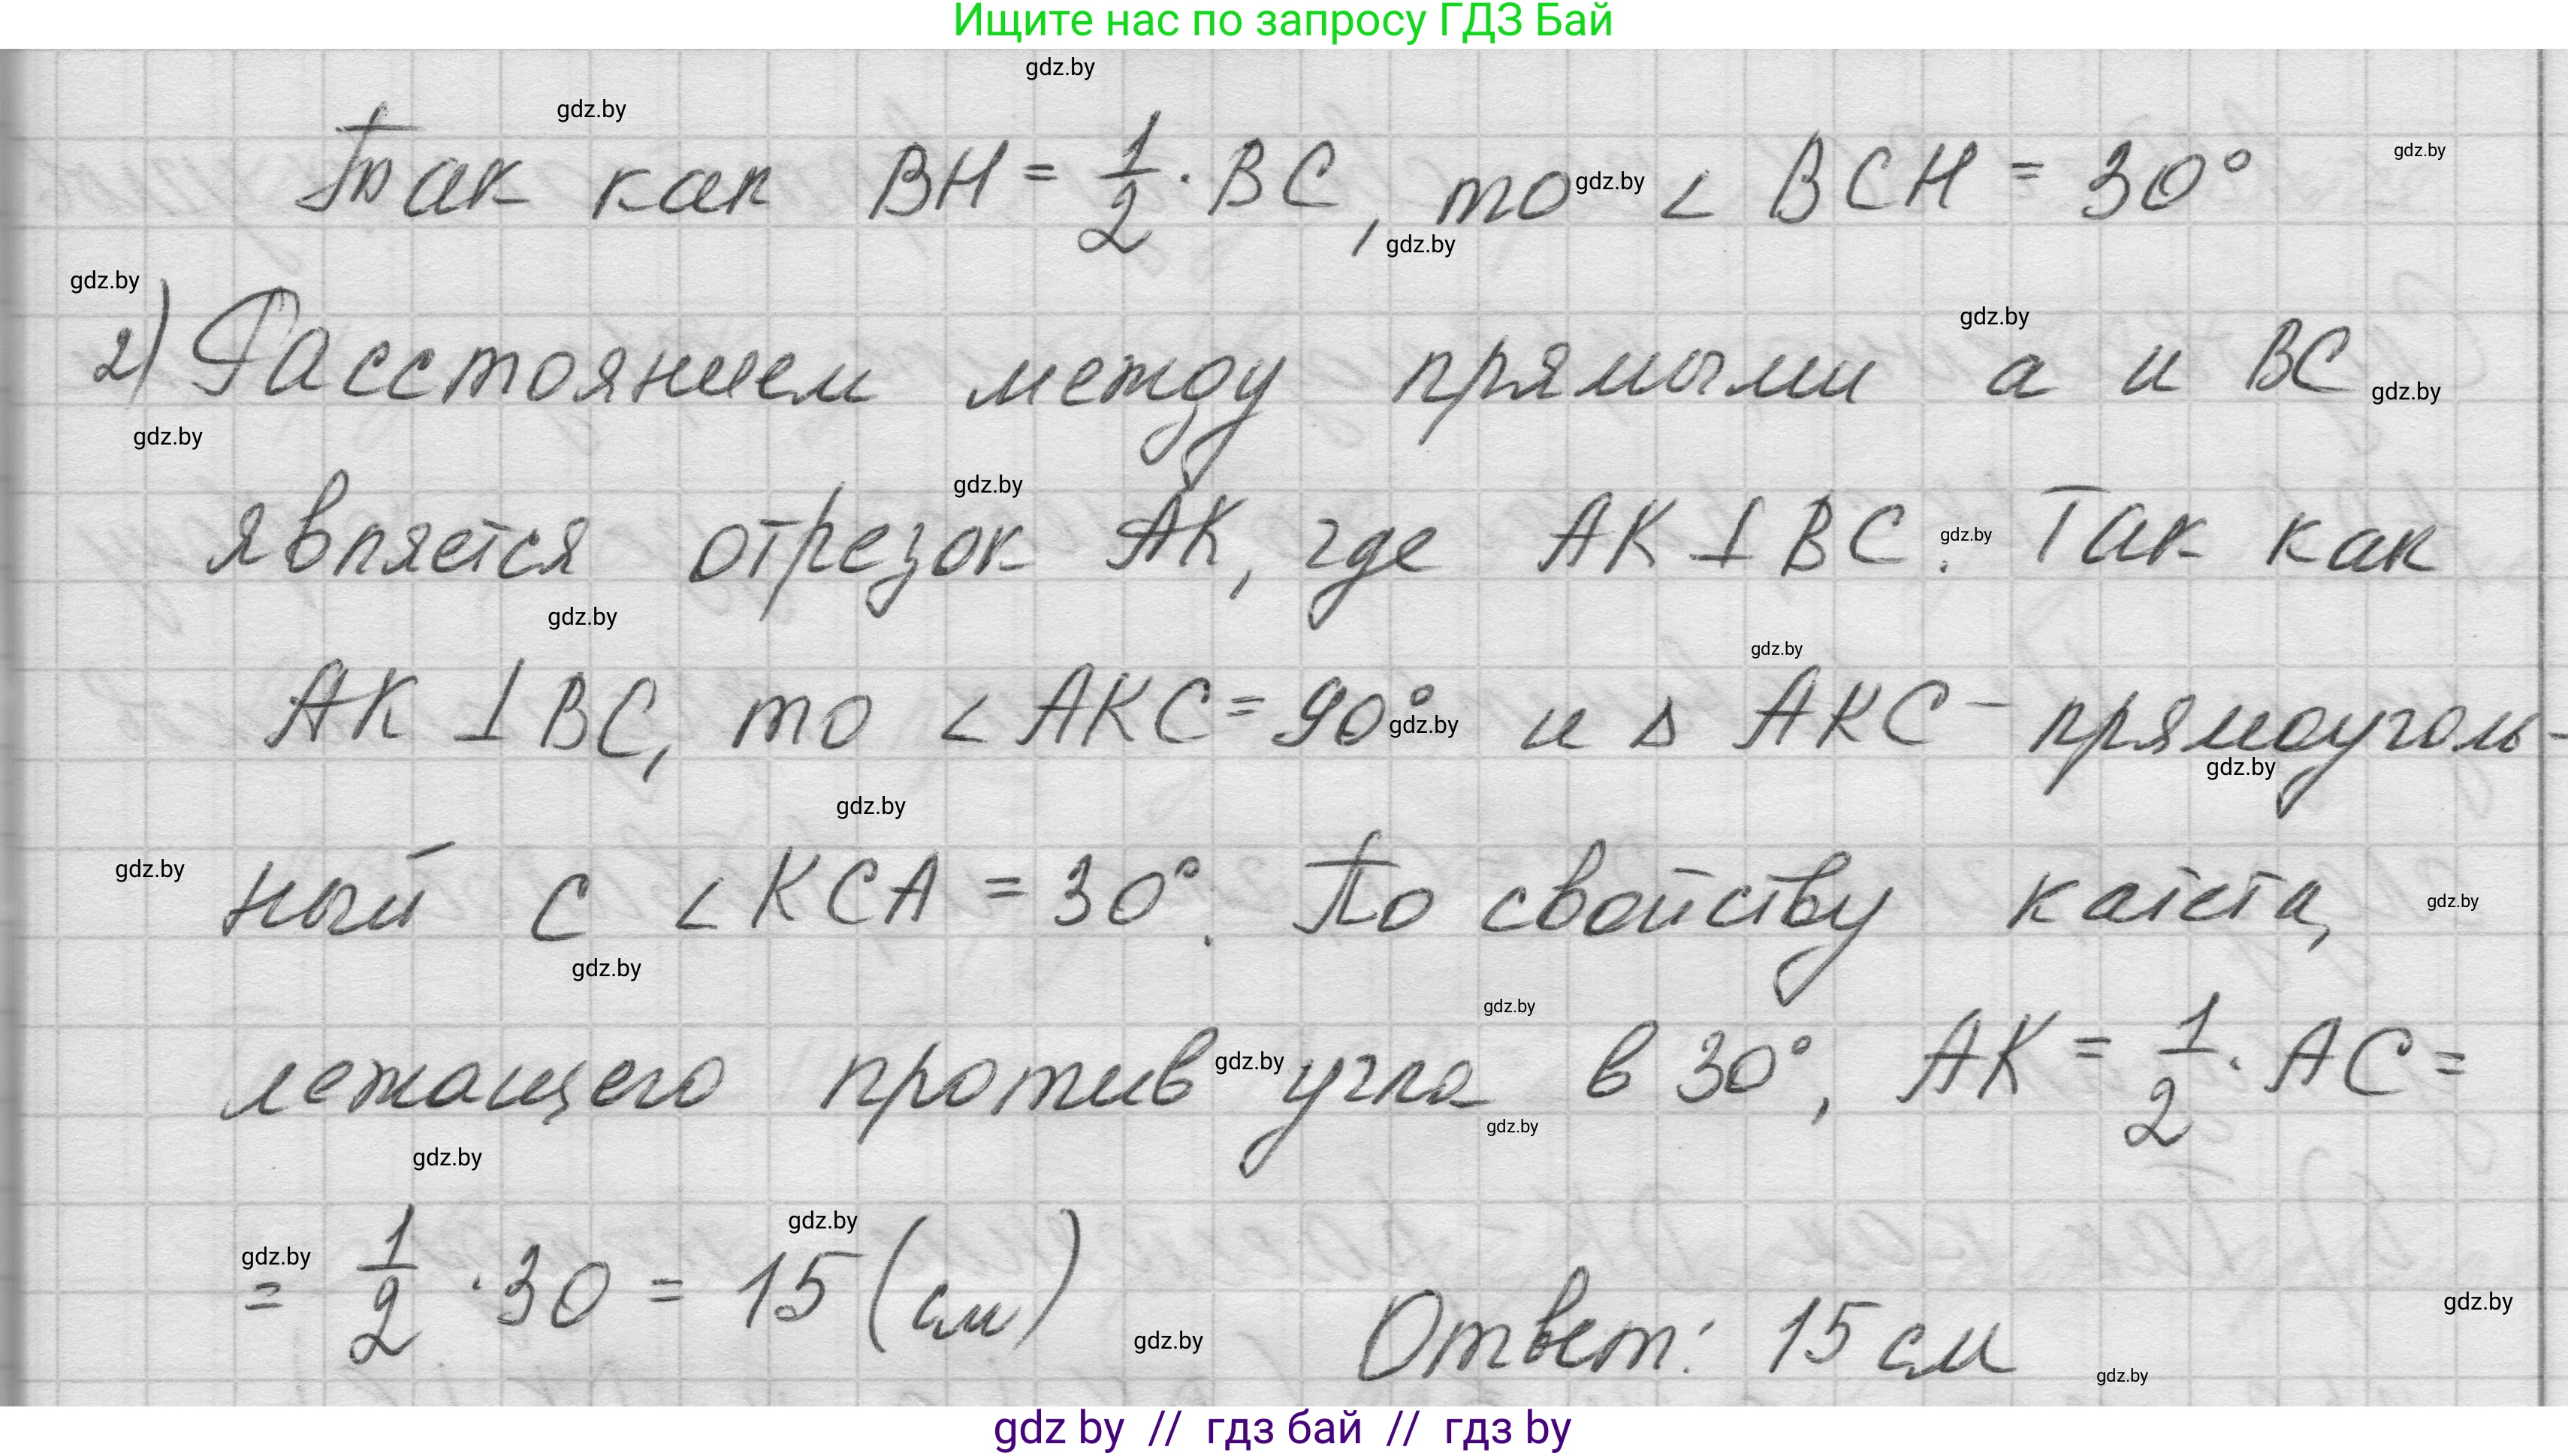 Ищите нас по запросу ГДЗ Бай
gdz.by
gdz.by
Так как BH = 1/2 · BC, то ∠ BCH = 30°
gdz.by
gdz.by
gdz.by
gdz.by
gdz.by
2) Расстоянием между прямыми a и BC
gdz.by
gdz.by
gdz.by
является отрезок AK, где AK ⊥ BC. Так как
gdz.by
gdz.by
gdz.by
AK ⊥ BC, то ∠ AKC = 90° и Δ AKC – прямоуголь-
gdz.by
gdz.by
gdz.by
gdz.by
ный с ∠ KCA = 30°. По свойству катета,
gdz.by
gdz.by
gdz.by
лежащего против угла в 30°, AK = 1/2 · AC =
gdz.by
gdz.by
gdz.by
gdz.by
gdz.by
= 1/2 · 30 = 15 (см)
gdz.by
gdz.by
Ответ: 15 см
gdz.by
gdz by // гдз бай // гдз by